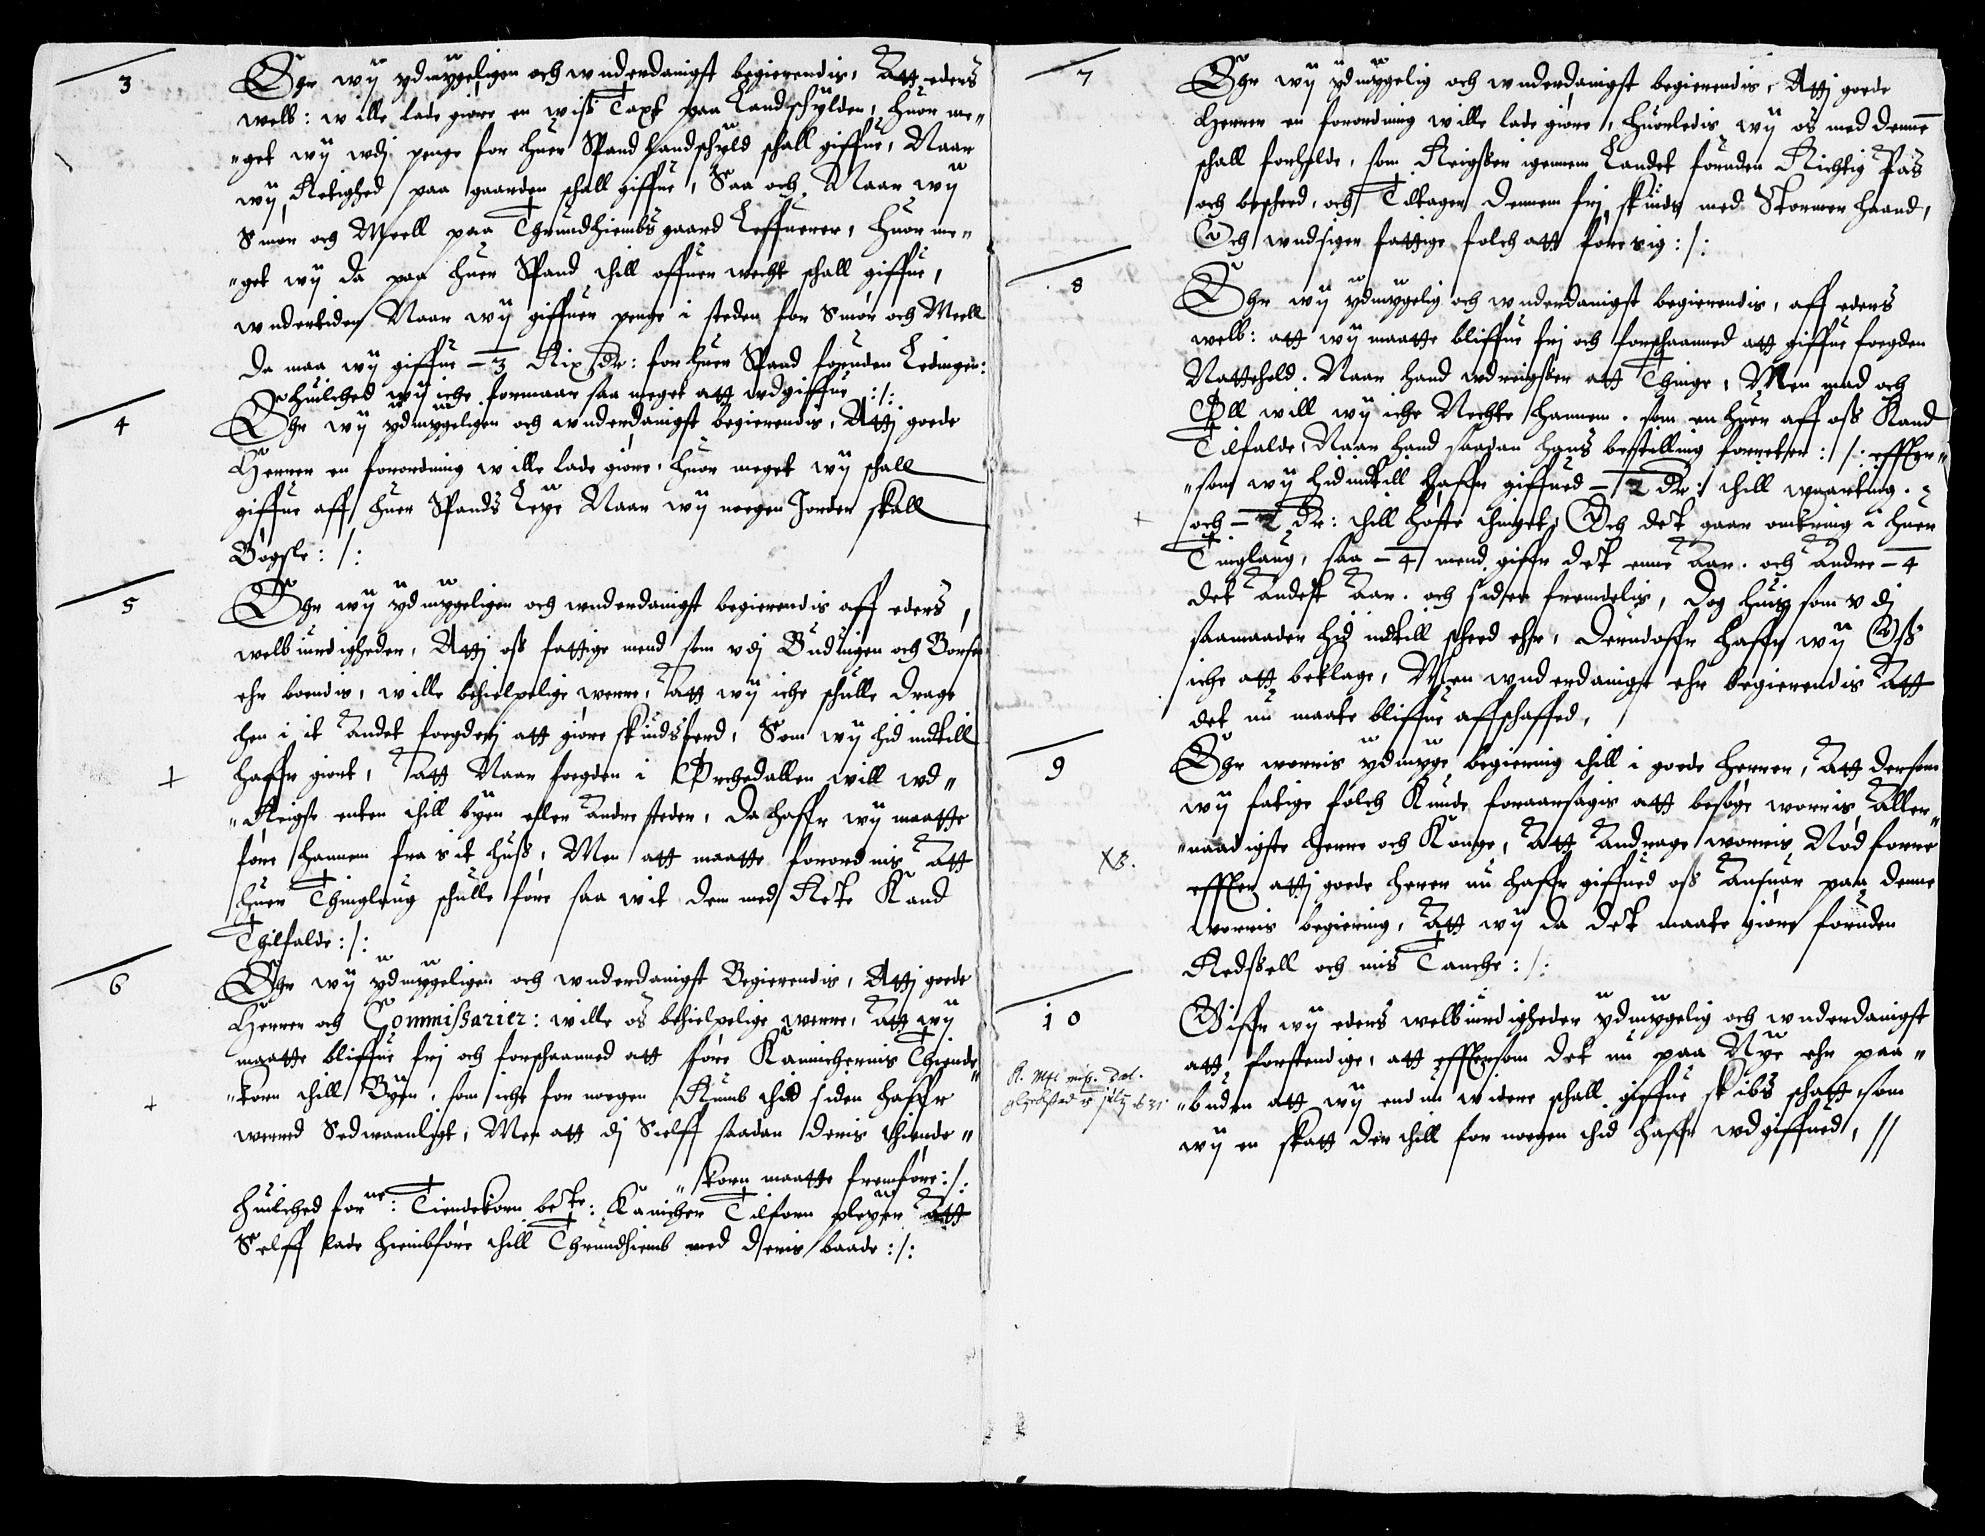 3
Ehr wÿ ydmygeligen och wnderdanigst begierendis, Att eders
welb: wille lade giøre en wiss Taxt paa Landschylden, huor me„
„get wÿ udj penge for huer Spand Landschyld schall giffue, Naar
wÿ Retighed paa gaarden schall giffue, Saa och Naar wÿ
Smør och Meell paa Thrundhiembs gaard Leffuerer, huor me„
„get wÿ da paa huer Spand thill offuer wecht schall giffue,
wndertiden Naar wÿ giffuer penge i steden for Smør och Meell
Da maa wÿ giffue – 3 Rix Dr: for huer Spand foruden Ledingen:
Huilched wÿ iche formaar saa meget att udgiffue :/:
4
Ehr wÿ ydmygeligen och wnderdanigst begierendis, Attj goede
Herrer en forordning wille lade giøre, huor meget wÿ schall
giffue aff huer Spands Leye Naar wÿ noegen Jorder skall
Bøgsle :/:
5
Ehr wÿ ydmygeligen och wnderdanigst begierendis aff eders
welbiurdigheder, Attj oss fattige mend som udj Buduigen och Borsen
ehr boendis, wille behielpelige werre, Att wÿ iche schulle drage
hen i it Andet foegderj att giøre skiudsferd, Som wÿ hid indtill
haffr giort, Att Naar foegden i Orchedallen will wd„
„Reigse enten thill byen eller Andre steder, Da haffr wÿ maatte
føre hannem fra sit huss, Men att maatte forordnis Att
huer Thinglaug schulle føre saa wit dem med Rete Kand
Thilfalde :/:
6
Ehr wÿ ydmygeligen och wnderdanigst Begierendis, Attj goede
Herrer och Commissarier: wille os behielpelige werre, Att wÿ
maatte bliffue frj och forschaanned att føre Kannichernis Thiende„
„korn thill Byen, som icht for noegen Rumb thid siden haffr
werred Sedwaanligt, Men att dj Sielff saadan deris thiende„
„korn maatte fremføre :/:
Huilched forne: Tiendekorn bete: Kanicher Tilforn pleyer att
Selff lade hiembføre thill Thrundhiemb med deris baade :/:
7
Ehr wÿ ydmygelig och wnderdanigst begierendis, Attj goede
Herrer en forordning wille lade giøre, huorledis wÿ os med denne
schall forholde, som Reigsler igennem Landet foruden Richtig Pas
och bescheed, och Tiltager dennem frj skiuds med Stormer haand,
Och wndsiger fattige folch att føre sig :/:
8
Ehr wÿ ydmygelig och wnderdanigst begierendis, aff eders
welb: att wÿ maatte bliffue frj och forschaanned att giffue foegden
Nattehold. Naar hand udreigser att Thinge, Men mad och
Øll will wÿ iche Nechte hannem, som en huer aff oss Kand
Tilfalde, Naar hand saadan hans bestelling forretter :/: effter„
„som wÿ hid indtill haffr giffued – 2 Dr: thill waarting
och – 2 Dr: thill høste thinget, Och det gaar omkring i huer
Tinglaug, saa – 4 mend giffr det enne Aar, och Andre – 4
det Andett Aar, och siden fremdelis, Dog huis som udj
saamaader hid indtill scheed ehr, Derudoffr haffr wÿ Oss
iche att beklage, Men wnderdanigst ehr begierendis Att
det nu maate bliffue affschaffed,
9
Ehr worris ydmyge begiering thill i goede Herrer, Att dersom
wÿ fatige folch Kunde foraarsagis att besøge worris Aller„
„naadigste Herre och Konge, Att Andrage worris Nød forre
effter attj goede Herrer nu haffr giffued oss Ansuar paa denne
worris begiering, Att wÿ da det maate giøre foruden
Redssell och mis Tanche :/:
10
Giffr wÿ eders welbiurdigheder ydmygelig och wnderdanigst
att forstendige, att effttersom det nu paa Nye ehr paa„
„buden att wÿ end nu widere schall giffue skibs schatt, som
wÿ en skatt der thill for noegen thid haffr udgiffued, //